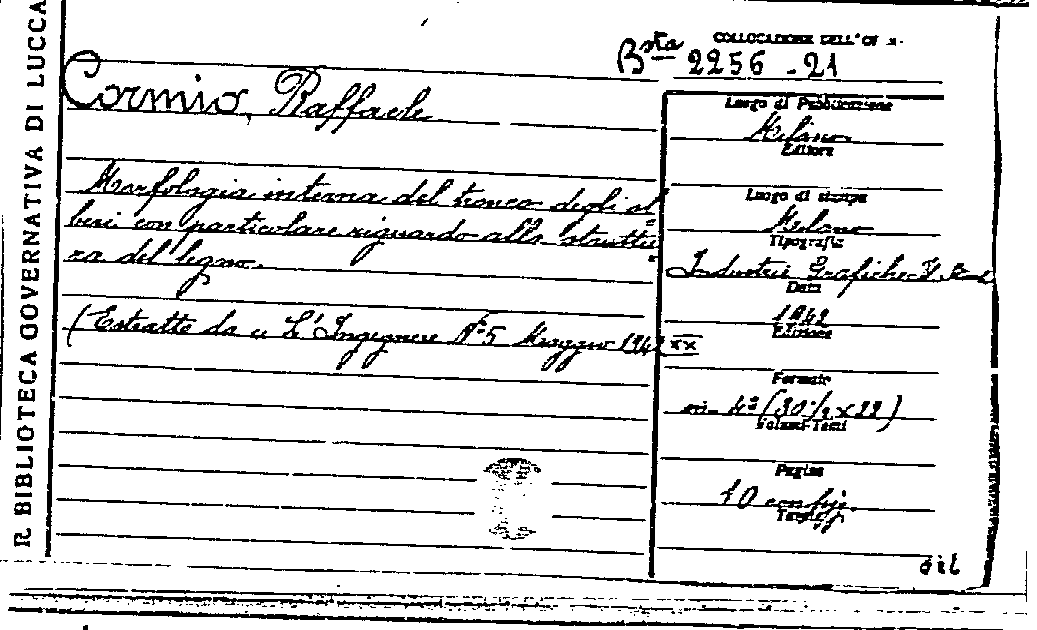 R. BIBLIOTECA GOVERNATIVA DI LUCCA
COLLOCAZIONE DELL'OP
Bsta 2256 - 21
Cormio, Raffaele
Morfologia interna del tronco degli al
beri con particolare riguardo alla struttu
ra del legno.
(Estratto da L'Ingegnere N° 5 Maggio 1942 XX
Luogo di Pubblicazione
Milano
Editore
Luogo di stampa
Milano
Tipografia
Industrie Grafiche
Data
1942
Edizione
Formato
in- 4° (30 1/2 x 22)
Volumi-Tomi
Pagine
10 con fig.
Tavole